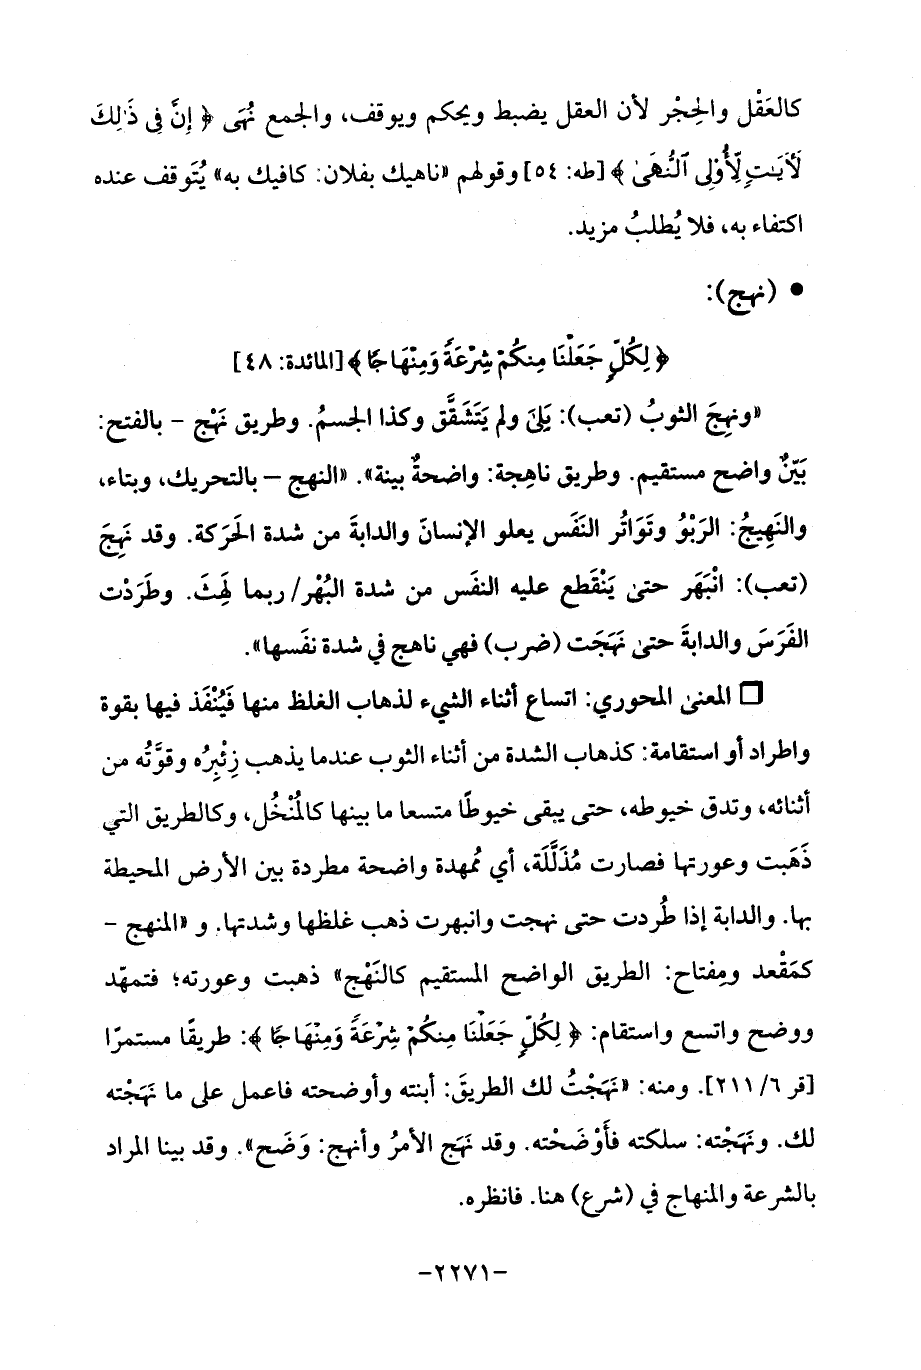 كالعَقْل والحِجْر لأن العقل يضبط ويحكم ويوقف، والجمع نُهَى ﴿ إِنَّ فِى ذَٰلِكَ
لَأَيَـٰتٍ لِّأُوْلِى ٱلنُّهَىٰ ﴾ [طه: ٥٤] وقولهم «ناهيك بفلان: كافيك به» يُتَوقف عنده
اكتفاء به، فلا يُطلبُ مزيد.
• (نهج):
﴿ لِكُلٍّ جَعَلْنَا مِنكُمْ شِرْعَةً وَمِنْهَاجًا ﴾ [المائدة: ٤٨]
«ونهِجَ الثوبُ (تعب): بَلِىَ ولم يَتَشَقَّق وكذا الجسمُ. وطريق نَهْج – بالفتح:
بَيّنٌ واضح مستقيم. وطريق ناهِجة: واضحةٌ بينة». «النهج – بالتحريك، وبتاء،
والنَهِيجُ: الرَبْوُ وتَوَاتُر النَفَس يعلو الإنسانَ والدابةَ من شدة الحَرَكة. وقد نهِجَ
(تعب): انْبَهَر حتى يَنْقَطع عليه النفَس من شدة البُهْر/ ربما لَهِثَ. وطَرَدْت
الفَرَسَ والدابةَ حتى نَهَجَت (ضرب) فهي ناهج في شدة نفَسها».
□ المعنى المحوري: اتساع أثناء الشيء لذهاب الغلظ منها فَيُنْفَذ فيها بقوة
واطراد أو استقامة: كذهاب الشدة من أثناء الثوب عندما يذهب زِئْبِرُه وقوَّتُه من
أثنائه، وتدق خيوطه، حتى يبقى خيوطًا متسعا ما بينها كالمُنْخُل، وكالطريق التي
ذَهَبت وعورتها فصارت مُذَلَّلَة، أي مُمهدة واضحة مطردة بين الأرض المحيطة
بها. والدابة إذا طُردت حتى نهجت وانبهرت ذهب غلظها وشدتها. و «المنهج –
كمَقْعد ومِفتاح: الطريق الواضح المستقيم كالنَهْج» ذهبت وعورته؛ فتمهّد
ووضح واتسع واستقام: ﴿ لِكُلٍّ جَعَلْنَا مِنكُمْ شِرْعَةً وَمِنْهَاجًا ﴾: طريقًا مستمرًا
[قر ٦/ ٢١١]. ومنه: «نَهَجْتُ لك الطريقَ: أبنته وأوضحته فاعمل على ما نَهَجْته
لك. ونَهَجْته: سلكته فأَوْضَحْته. وقد نَهَج الأمرُ وأنهج: وَضَح». وقد بينا المراد
بالشرعة والمنهاج في (شرع) هنا. فانظره.
–٢٢٧١–